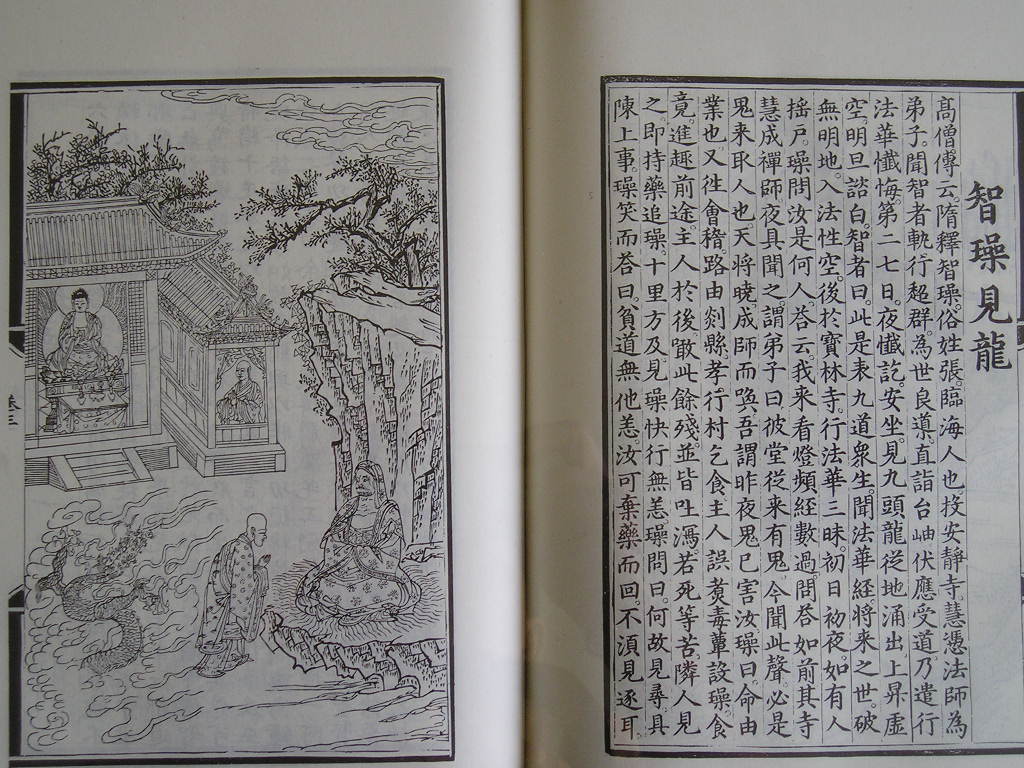 智璪見龍
高僧傳云。隋釋智璪。俗姓張。臨海人也。投安靜寺。慧憑法師為
弟子。聞智者軌行超群。為世良導。直詣台岫伏應受道。乃遣行
法華懺悔。第二七日。夜懺訖。安坐。見九頭龍從地涌出上昇虛
空。明旦諮白智者曰。此是表九道眾生。聞法華經將來之世。破
無明地。入法性空。後於寶林寺。行法華三昧。初日初夜。如有人
搖戶。璪問汝是何人。答云。我來看燈。頻經數過。問答如前其寺
慧成禪師夜具聞之。謂弟子曰彼堂從來有鬼。今聞此聲。必是
鬼來取人也。天將曉成師而喚。吾謂昨夜鬼已害汝。璪曰。命由
業也。又往會稽。路由剡縣。孝行村乞食。主人誤煑毒蕈設璪。食
竟。進趣前途。主人於後。敢此餘殘。並皆吐瀉。若死等苦。隣人見
之。即持藥追璪。十里方及。見璪快行無恙。璪問曰。何故見尋。具
陳上事。璪笑而答曰。貧道無他恙。汝可棄藥而回。不須見逐耳。
卷三